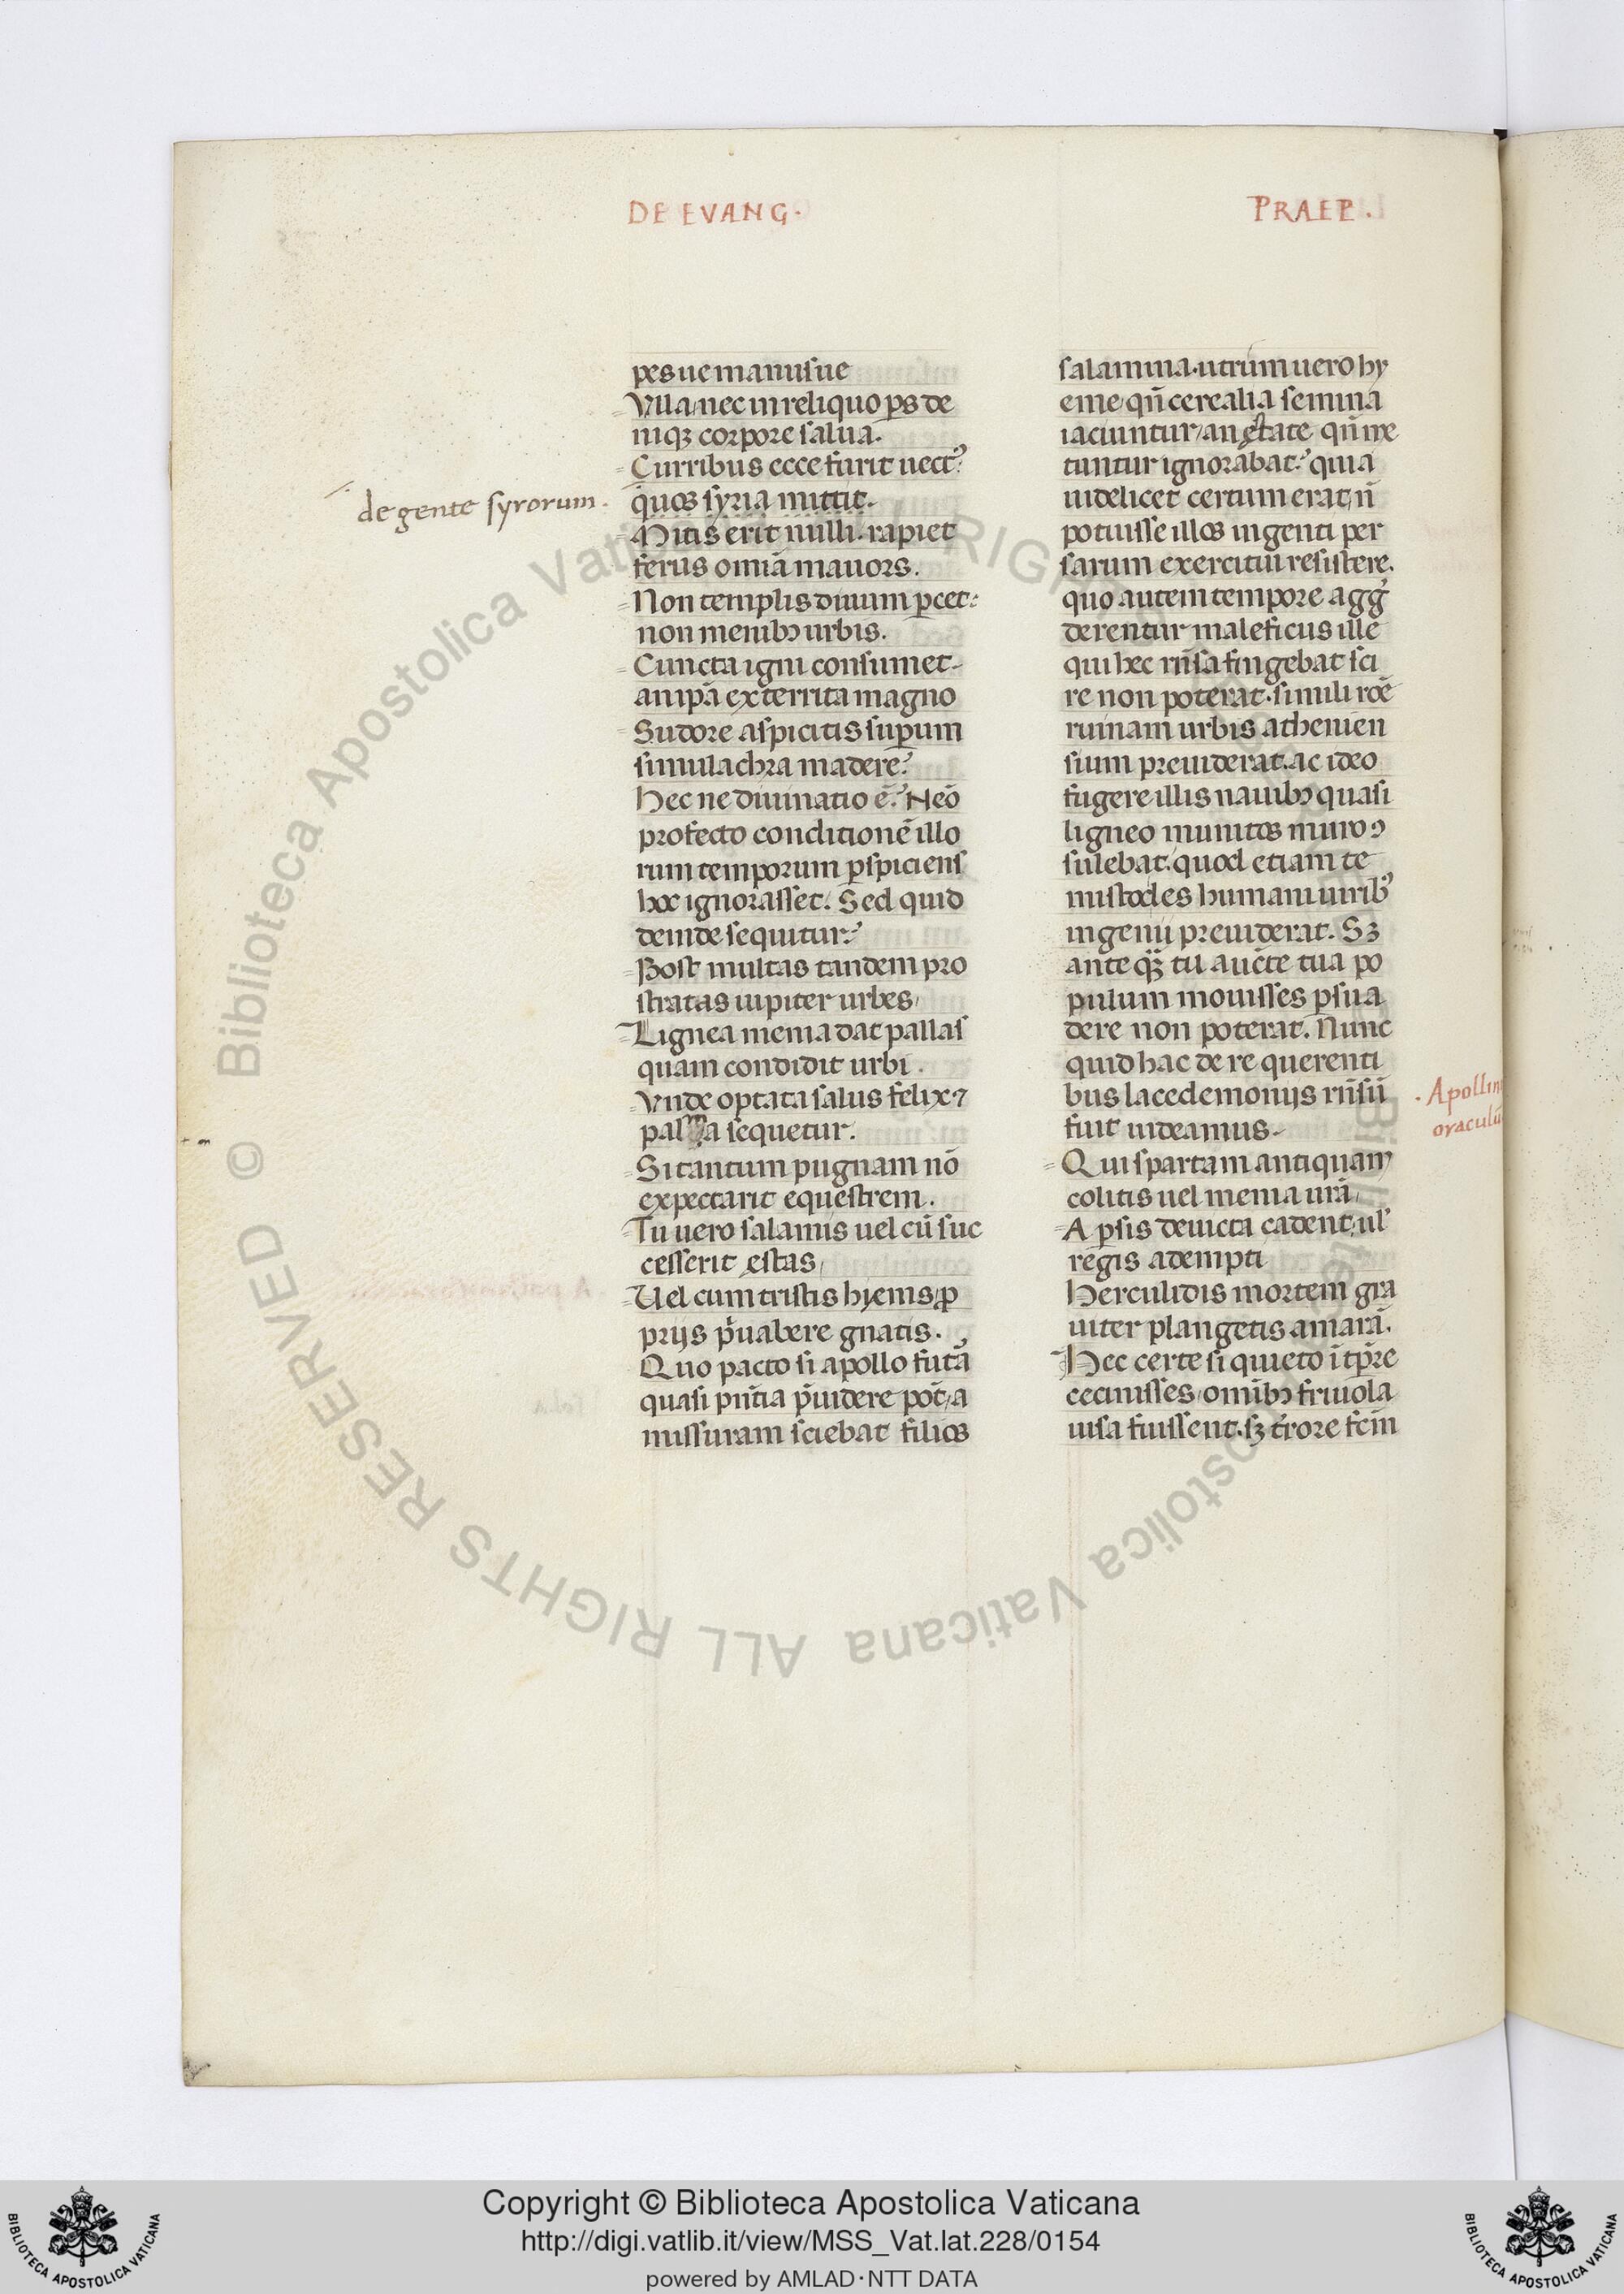 DE EVANG.
PRAEP.
pes ue manusue
Vlla nec in reliquo ꝑs de
niqꝫ corpore salua.
Curribus ecce furit uect᾽?
quos syria mittit.
de gente syrorum.
Mitis erit nulli. rapiet
ferus omīa mauors.
Non templis diuum ꝑcet:
non menibꝫ urbis.
Cuncta igni consumet.
an ipā exterrita magno
Sudore aspicitis suꝑum
simulachra madere?
Hec ne diuinatio ē? Neō
profecto conditionē illo
rum temporum ꝑspiciens
hoc ignorasset. Sed quid
deinde sequitur?
Post multas tandem pro
stratas iupiter urbes,
Lignea menia dat pallas
quam condidit urbi.
Vnde optata salus felix ⁊
palma sequetur.
Si tantum pugnam nō
expectarit equestrem.
Tu uero salamis uel cū suc
cesserit ęstas,
Vel cum tristis hyems, ꝓ
prijs p̄uabere gnatis.
Quo pacto si apollo futā
quasi pn̄tia p̄uidere pot̄, a
missuram sciebat filios
salamina. utrum uero hy
eme, qn̄ cerealia semina
iaciuntur, an ęstate qn̄ me
tuntur ignorabat? quia
uidelicet certum erat, n̄
potuisse illos ingenti per
sarum exercitui resistere.
quo autem tempore aggr̄
derentur maleficus ille
qui hec rn̄sa fingebat sci
re non poterat. simili roē
ruinam urbis athenien
sium preuiderat. ac ideo
fugere illis nauibꝫ quasi
ligneo munitos muro ꝯ
sulebat. quod etiam te
mistocles humani uirib᾽
ingenij preuiderat. Sꝫ
ante qꝫ tu auct̄e tua po
pulum mouisses ꝑsua
dere non poterat. Nunc
quid hac de re querenti
bus lacedemonijs rn̄sū
fuit uideamus.
Apollin
oraculū
Qui spartam antiquam
colitis uel menia urā,
A ꝑsis deuicta cadent, ul᾽
regis adempti
Herculidis mortem gra
uiter plangetis amarā.
Hec certe si quieto ī tp̄re
cecinisses, omībꝫ friuola
uisa fuissent. sꝫ tr̄rore fem̄
Copyright © Biblioteca Apostolica Vaticana
http://digi.vatlib.it/view/MSS_Vat.lat.228/0154
powered by AMLAD·NTT DATA
BIBLIOTECA APOSTOLICA VATICANA
BIBLIOTECA APOSTOLICA VATICANA
© Biblioteca Apostolica Vaticana ALL RIGHTS RESERVED